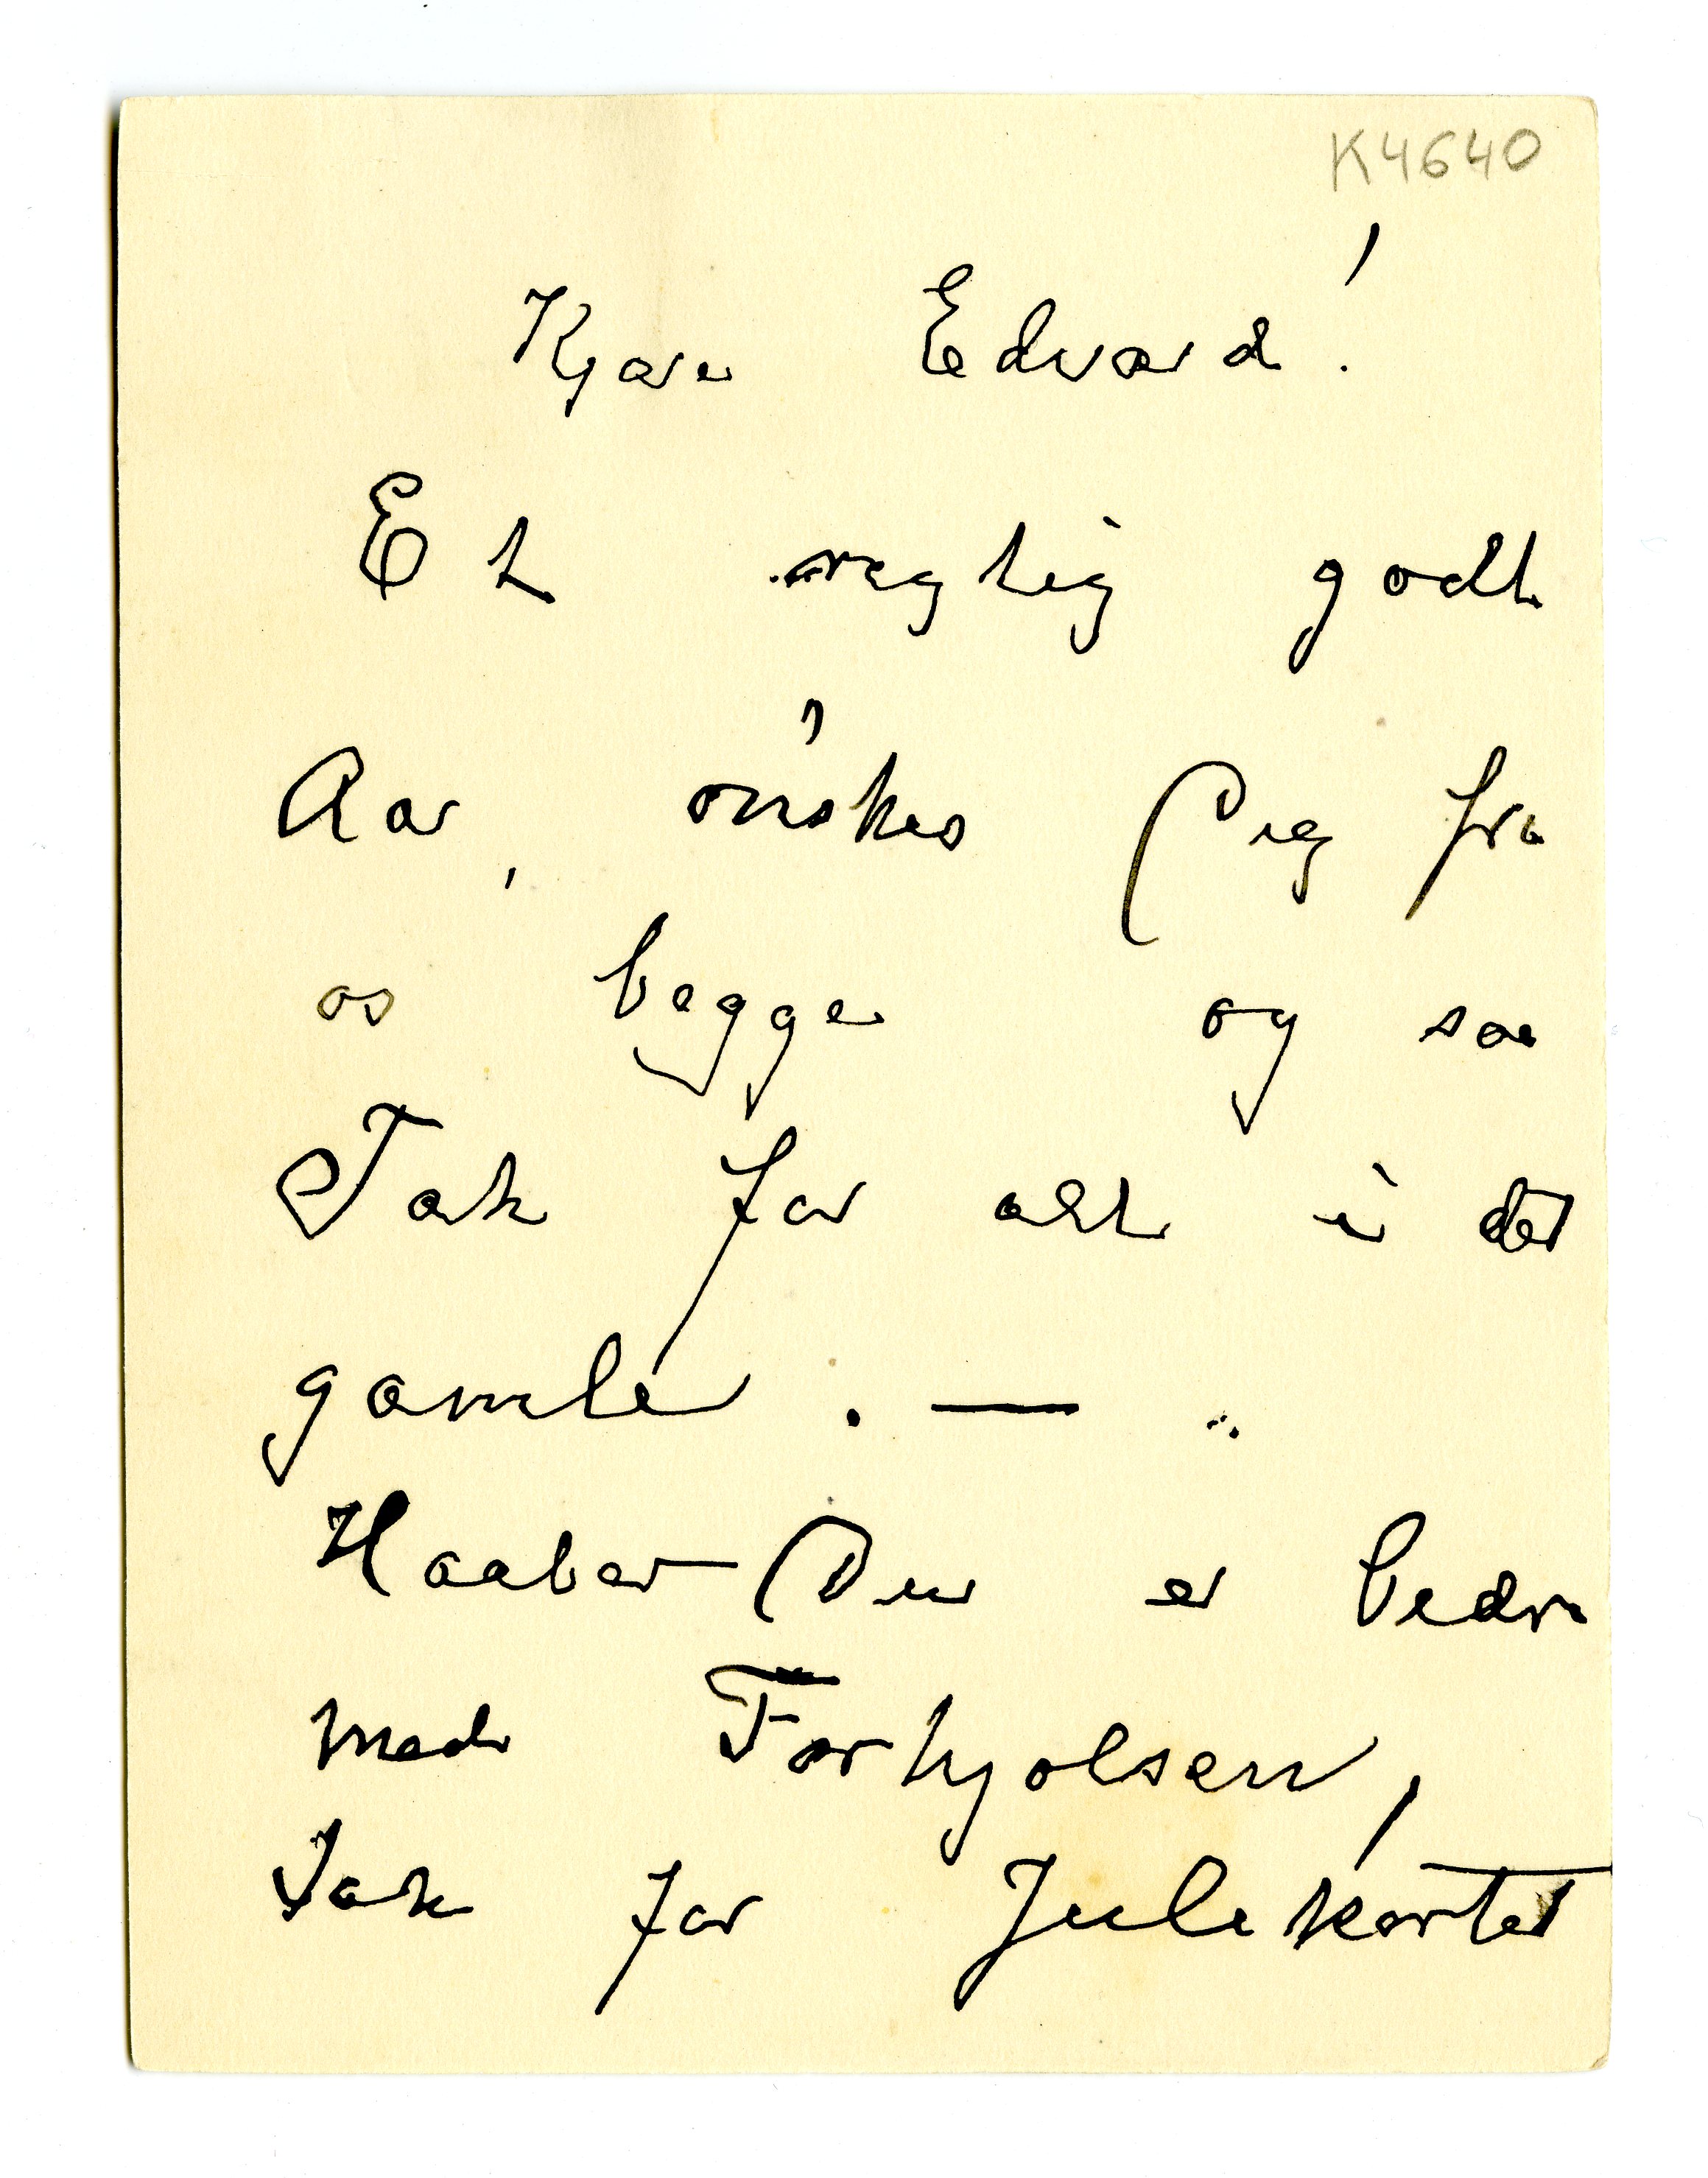 K4640
Kjære Edvard!
Et regtig godt
Aar, ønskes Deg fra
os begge og saa
Tak for alt i det
gamle. —
Haaber Du er bedre
med Forkjølsen,
Tak for Julekortet